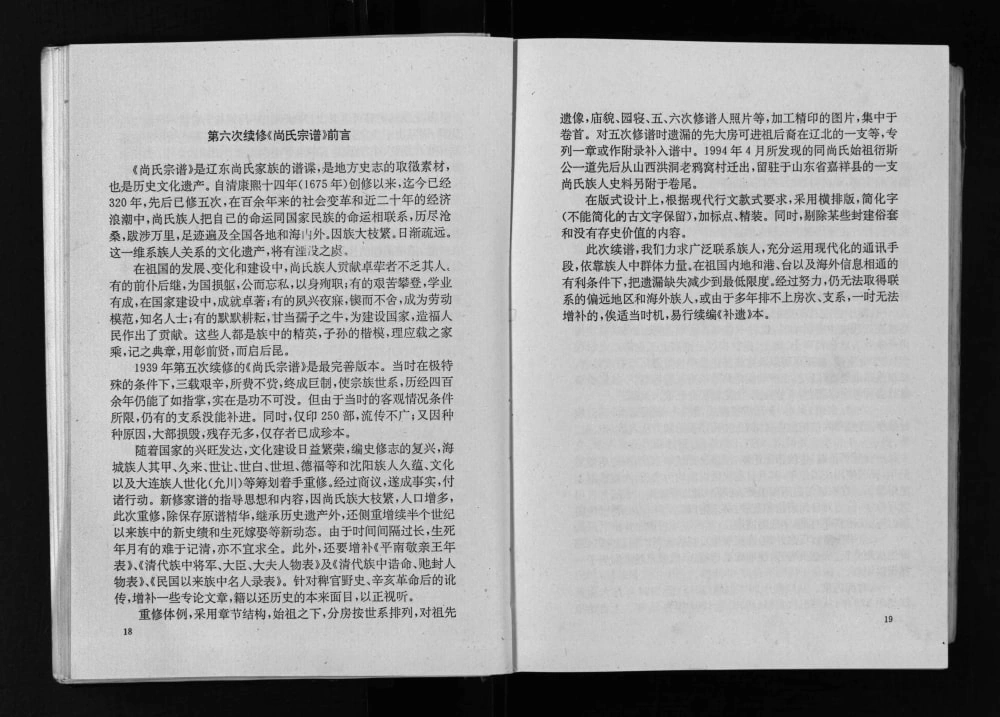 第六次续修《尚氏宗谱》前言
《尚氏宗谱》是辽东尚氏家族的谱谍,是地方史志的取徵素材,
也是历史文化遗产。自清康熙十四年(1675年)创修以来,迄今已经
320年,先后已修五次,在百余年来的社会变革和近二十年的经济
浪潮中,尚氏族人把自己的命运同国家民族的命运相联系,历尽沧
桑,跋涉万里,足迹遍及全国各地和海内外。因族大枝繁,日渐疏远。
这一维系族人关系的文化遗产,将有湮没之虞。
在祖国的发展、变化和建设中,尚氏族人贡献卓荦者不乏其人。
有的前仆后继,为国损躯,公而忘私,以身殉职;有的艰苦攀登,学业
有成,在国家建设中,成就卓著;有的夙兴夜寐,锲而不舍,成为劳动
模范,知名人士;有的默默耕耘,甘当孺子之牛,为建设国家,造福人
民作出了贡献。这些人都是族中的精英,子孙的楷模,理应载之家
乘,记之典章,用彰前贤,而启后昆。
1939年第五次续修的《尚氏宗谱》是最完善版本。当时在极特
殊的条件下,三载艰辛,所费不赀,终成巨制,使宗族世系,历经四百
余年仍能了如指掌,实在是功不可没。但由于当时的客观情况条件
所限,仍有的支系没能补进。同时,仅印250部,流传不广;又因种
种原因,大部损毁,残存无多,仅存者已成珍本。
随着国家的兴旺发达,文化建设日益繁荣,编史修志的复兴,海
城族人其甲、久来、世让、世白、世坦、德福等和沈阳族人久蕴、文化
以及大连族人世化(允川)等筹划着手重修。经过商议,遂成事实,付
诸行动。新修家谱的指导思想和内容,因尚氏族大枝繁,人口增多,
此次重修,除保存原谱精华,继承历史遗产外,还侧重增续半个世纪
以来族中的新史绩和生死嫁娶等新动态。由于时间间隔过长,生死
年月有的难于记清,亦不宜求全。此外,还要增补《平南敬亲王年
表》、《清代族中将军、大臣、大夫人物表》及《清代族中诰命、貤封人
物表》、《民国以来族中名人录表》。针对稗官野史、辛亥革命后的讹
传,增补一些专论文章,籍以还历史的本来面目,以正视听。
重修体例,采用章节结构,始祖之下,分房按世系排列,对祖先
18
遗像,庙貌、园寝、五、六次修谱人照片等,加工精印的图片,集中于
卷首。对五次修谱时遗漏的先大房可进祖后裔在辽北的一支等,专
列一章或作附录补入谱中。1994年4月所发现的同尚氏始祖衍斯
公一道先后从山西洪洞老鸦窝村迁出,留驻于山东省嘉祥县的一支
尚氏族人史料另附于卷尾。
在版式设计上,根据现代行文款式要求,采用横排版,简化字
(不能简化的古文字保留),加标点、精装。同时,剔除某些封建俗套
和没有存史价值的内容。
此次续谱,我们力求广泛联系族人,充分运用现代化的通讯手
段,依靠族人中群体力量。在祖国内地和港、台以及海外信息相通的
有利条件下,把遗漏缺失减少到最低限度。经过努力,仍无法取得联
系的偏远地区和海外族人,或由于多年排不上房次、支系,一时无法
增补的,俟适当时机,易行续编《补遗》本。
19